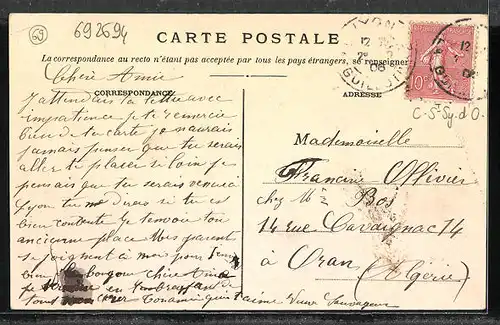 69
692694
CARTE POSTALE
La correspondance au recto n'étant pas acceptée par tous les pays étrangers, se renseigner
CORRESPONDANCE
ADRESSE
LYON
GUILLOTI
12
08
10c
C-S-Sy.d'O.
Chère Amie
J'attendais ta lettre avec
impatience je te remercie
bien de ta carte je n'aurais
jamais penser que tu serais
aller te placer si loin je
pensais que tu serais venue a
Lyon tu me diras si tu es
bien contente Je t'envoie ton
ancienne place Mes parent
se joignent à moi pour
bien le bonjour chère Amie
je en t'embrassant de
tous Ton amie qui t'aime
Mademoiselle
Francine Ollivier
chez M Bos
14 rue Cavaignac 14
à Oran
(Algérie)